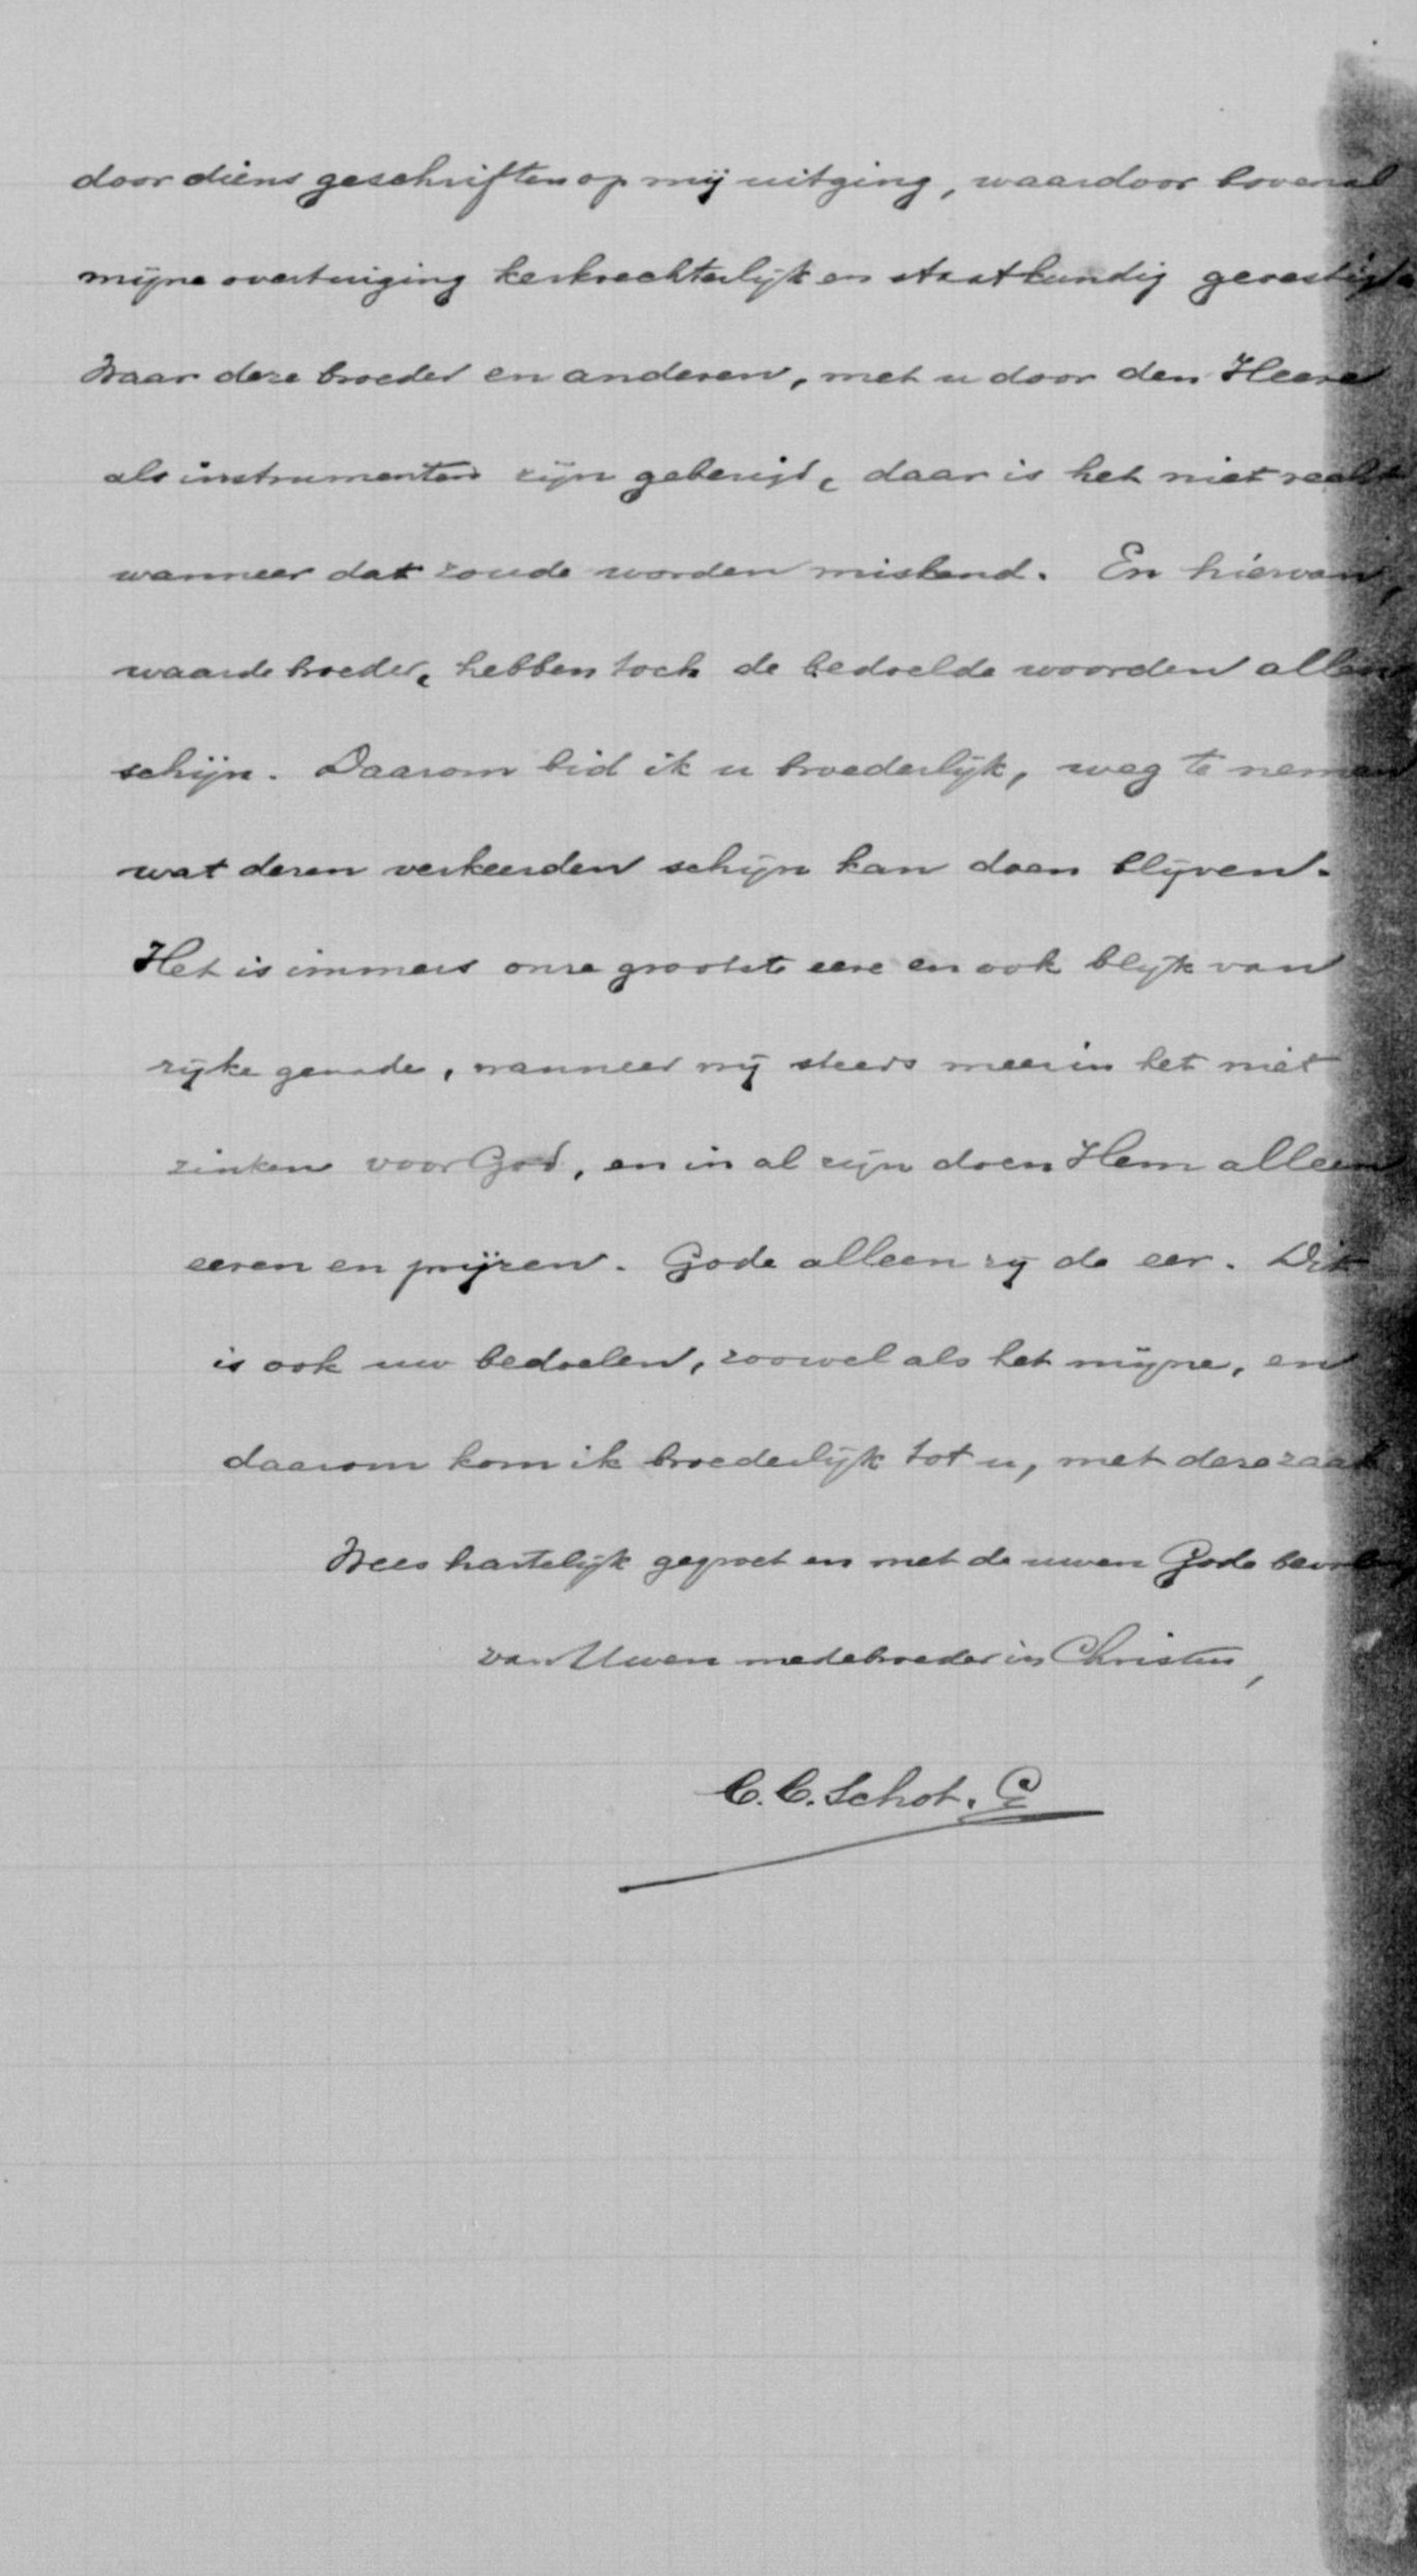 door diens geschriften op mij uitging, waardoor bovenal
mijne overtuiging kerkrechterlijk en staatkundig gevestigd
Waar deze broeder en anderen, met u door den Heere
als instrumenten zijn gebezigd, daar is het niet recht
wanneer dat zoude worden miskend. En hiervan,
waarde broeder, hebben toch de bedoelde woorden allen
schijn. Daarom bid ik u broederlijk, weg te nemen
wat dezen verkeerden schijn kan doen blijven.
Het is immers onze grootste eere en ook blijk van
rijke genade, wanneer wij steeds meer in het niet
zinken voor God, en in al zijn doen Hem alleen
eeren en prijzen. Gode alleen zij de eer. Dit
is ook uw bedoelen, zoowel als het mijne, en
daarom kom ik broederlijk tot u, met deze zaak
Wees hartelijk gegroet en met de uwen Gode bevolen
van Uwen medebroeder in Christus,
C. C. Schot. C